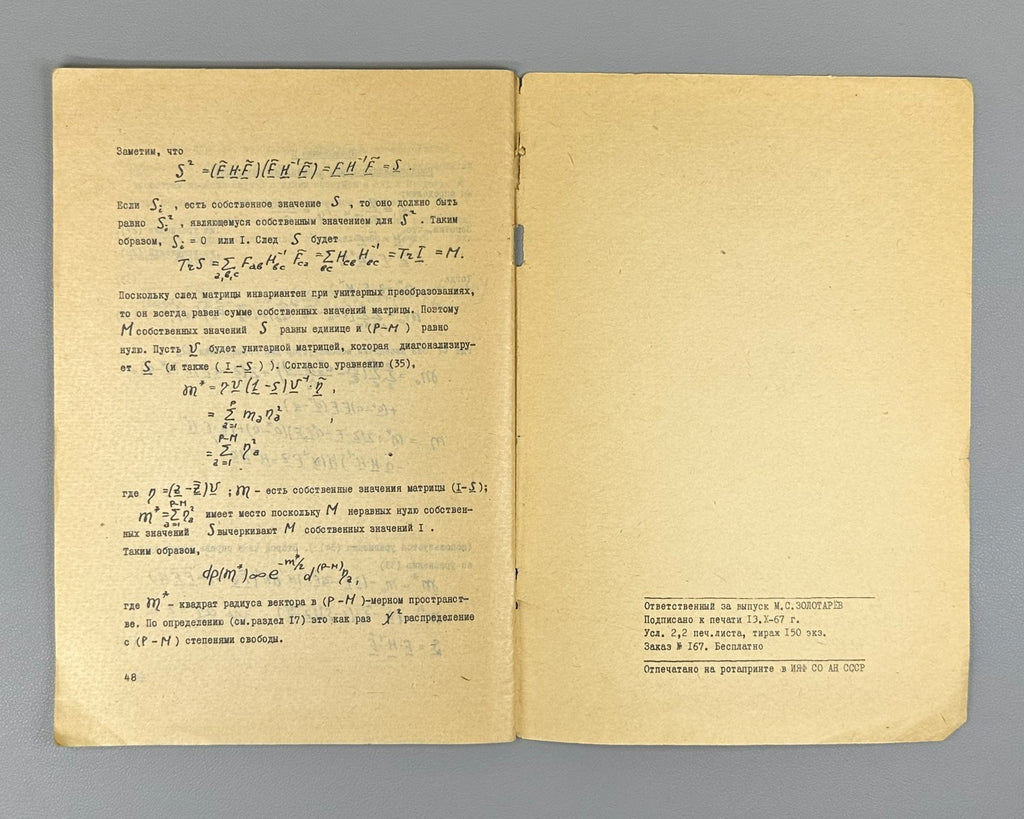 Заметим, что
S² = (F̃ H·F̃)(F̃ H⁻¹F̃) = F H⁻¹ F̃ = S .
Если Sᵢ , есть собственное значение S , то оно должно быть
равно Sᵢ² , являющемуся собственным значением для S² . Таким
образом, Sᵢ = 0 или I. След S будет
TrS = Σ F_ав H⁻¹_вс F̃_са = Σ H_св H⁻¹_вс = Tr I = M.
а,в,с вс
Поскольку след матрицы инвариантен при унитарных преобразованиях,
то он всегда равен сумме собственных значений матрицы. Поэтому
M собственных значений S равны единице и (P-M ) равно
нулю. Пусть U будет унитарной матрицей, которая диагонализиру-
ет S (и также ( I - S ) ). Согласно уравнению (35),
m* = η U (1 - S) U⁻¹ · η̃ ,
= Σ_{a=1}^{P} m_a η_a² ,
= Σ_{a=1}^{P-M} η_a² .
где η = (a - ā) U ; m - есть собственные значения матрицы (I-S);
m* = Σ_{a=1}^{P-M} η_a² имеет место поскольку M неравных нулю собствен-
ных значений S вычеркивают M собственных значений I .
Таким образом,
dp(m*) ∞ e^{-m*/2} d^{(P-M)} η_a ,
где m* - квадрат радиуса вектора в (P - M )-мерном пространст-
ве. По определению (см.раздел I7) это как раз χ² распределение
с (P - M ) степенями свободы.
48
Ответственный за выпуск М.С.ЗОЛОТАРЕВ
Подписано к печати I3.X-67 г.
Усл. 2,2 печ.листа, тираж I50 экз.
Заказ № I67. Бесплатно
Отпечатано на ротапринте в ИЯФ СО АН СССР